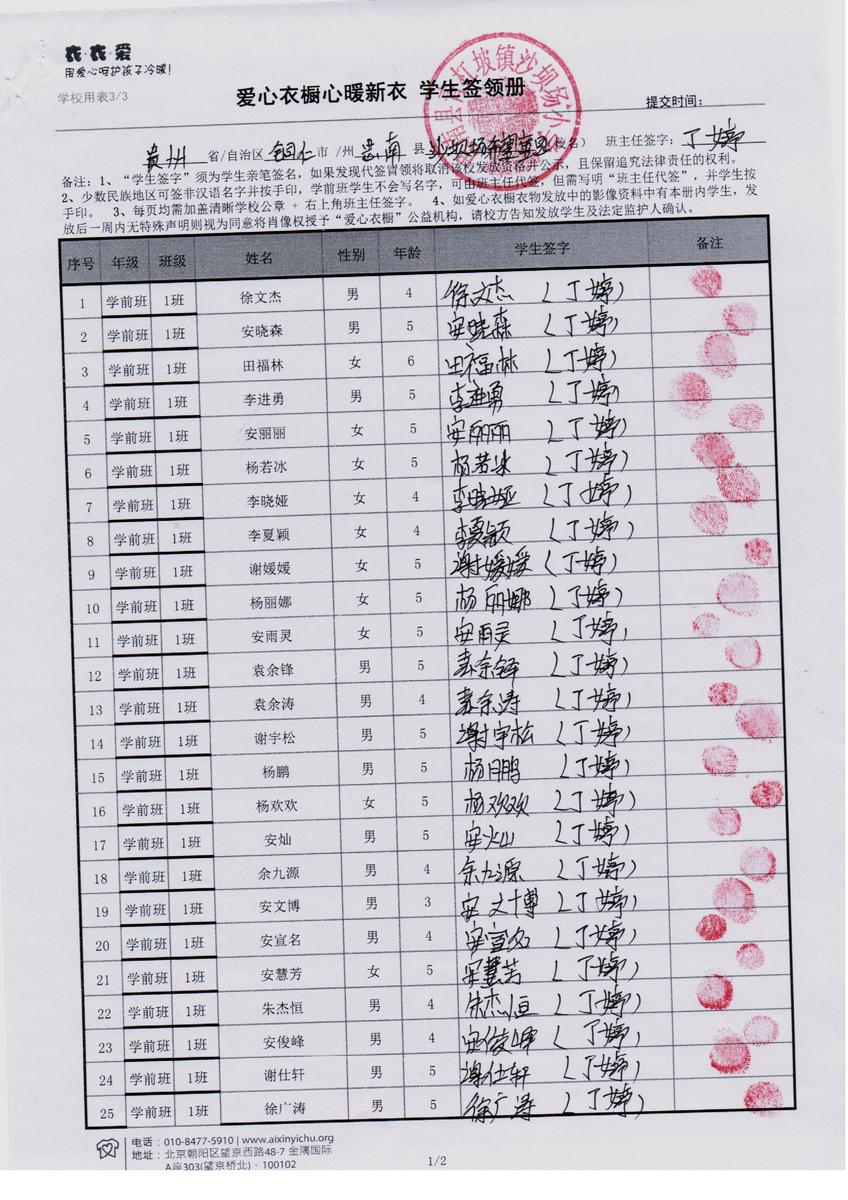 衣·衣·爱
用爱心呵护孩子冷暖!
学校用表3/3
爱心衣橱心暖新衣 学生签领册
提交时间:
贵州 省/自治区 铜仁 市 /州 思南 县 沙坝场 校名) 班主任签字: 丁婷
备注: 1、“学生签字”须为学生亲笔签名, 如果发现代签冒领将取消该校发放资格并公示, 且保留追究法律责任的权利。
2、少数民族地区可签非汉语名字并按手印, 学前班学生不会写名字, 可由班主任代签, 但需写明“班主任代签”, 并学生按
手印。 3、每页均需加盖清晰学校公章 + 右上角班主任签字。 4、如爱心衣橱衣物发放中的影像资料中有本册内学生, 发
放后一周内无特殊声明则视为同意将肖像权授予“爱心衣橱”公益机构, 请校方告知发放学生及法定监护人确认。
序号 年级 班级 姓名 性别 年龄 学生签字 备注
1 学前班 1班 徐文杰 男 4 徐文杰 (丁婷)
2 学前班 1班 安晓森 男 5 安晓森 (丁婷)
3 学前班 1班 田福林 女 6 田福林 (丁婷)
4 学前班 1班 李进勇 男 5 李进勇 (丁婷)
5 学前班 1班 安丽丽 女 5 安丽丽 (丁婷)
6 学前班 1班 杨若冰 女 5 杨若冰 (丁婷)
7 学前班 1班 李晓娅 女 4 李晓娅 (丁婷)
8 学前班 1班 李夏颖 女 4 李夏颖 (丁婷)
9 学前班 1班 谢媛媛 女 5 谢媛媛 (丁婷)
10 学前班 1班 杨丽娜 女 5 杨丽娜 (丁婷)
11 学前班 1班 安雨灵 女 5 安雨灵 (丁婷)
12 学前班 1班 袁余锋 男 5 袁余锋 (丁婷)
13 学前班 1班 袁余涛 男 4 袁余涛 (丁婷)
14 学前班 1班 谢宇松 男 5 谢宇松 (丁婷)
15 学前班 1班 杨鹏 男 5 杨鹏 (丁婷)
16 学前班 1班 杨欢欢 女 5 杨欢欢 (丁婷)
17 学前班 1班 安灿 男 5 安灿 (丁婷)
18 学前班 1班 余九源 男 4 余九源 (丁婷)
19 学前班 1班 安文博 男 3 安文博 (丁婷)
20 学前班 1班 安宣名 男 4 安宣名 (丁婷)
21 学前班 1班 安慧芳 女 5 安慧芳 (丁婷)
22 学前班 1班 朱杰恒 男 4 朱杰恒 (丁婷)
23 学前班 1班 安俊峰 男 4 安俊峰 (丁婷)
24 学前班 1班 谢仕轩 男 5 谢仕轩 (丁婷)
25 学前班 1班 徐广涛 男 5 徐广涛 (丁婷)
电话: 010-8477-5910 | www.aixinyichu.org
地址: 北京朝阳区望京西路48-7 金隅国际
A座303(望京桥北) · 100102
1/2